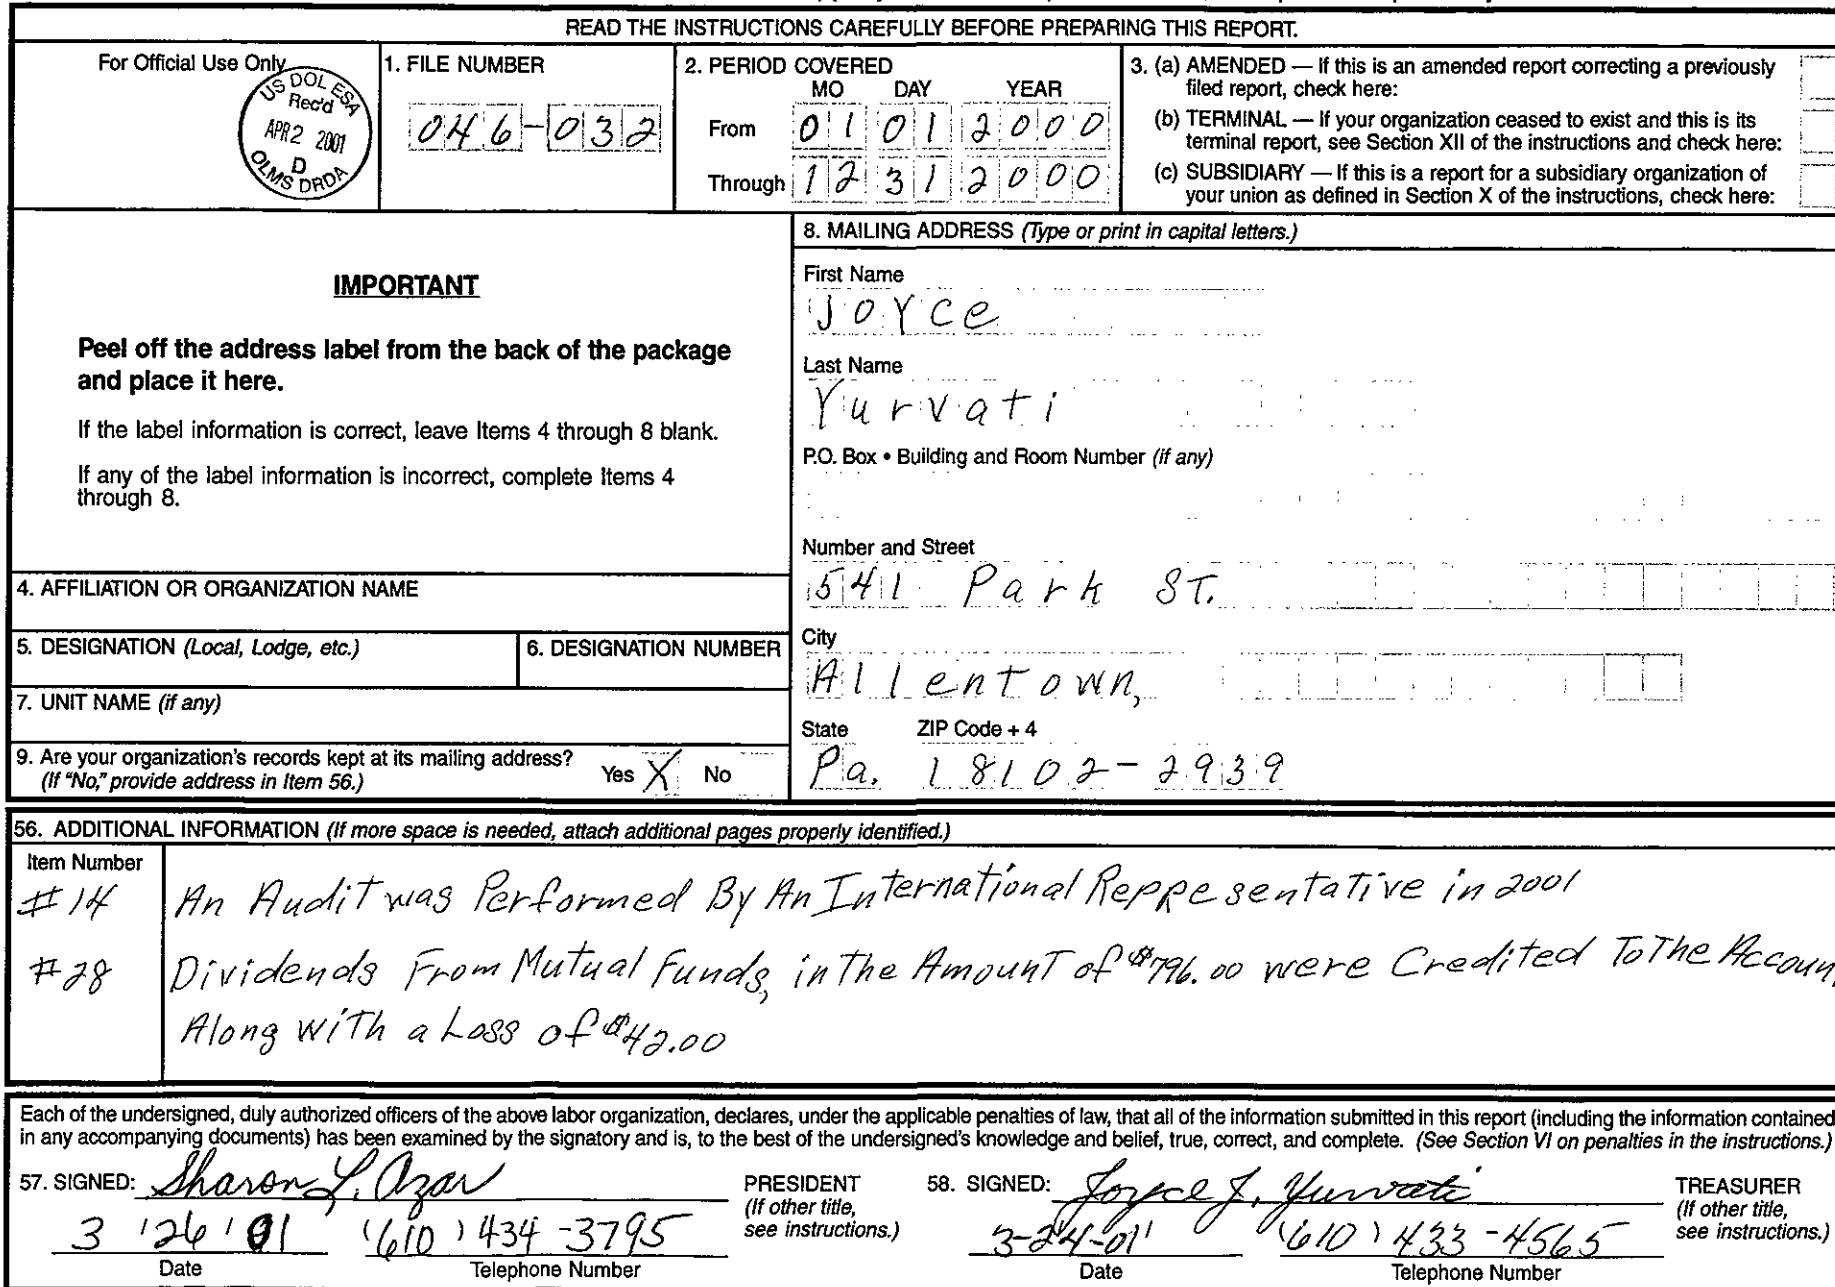 READ THE INSTRUCTIONS CAREFULLY BEFORE PREPARING THIS REPORT.
For Official Use Only
US DOL ESA
Rec'd
APR 2 2001
D
OLMS DRDA
1. FILE NUMBER
046-032
2. PERIOD COVERED
MO DAY YEAR
From 01 01 2000
Through 12 31 2000
3. (a) AMENDED — If this is an amended report correcting a previously
filed report, check here:
(b) TERMINAL — If your organization ceased to exist and this is its
terminal report, see Section XII of the instructions and check here:
(c) SUBSIDIARY — If this is a report for a subsidiary organization of
your union as defined in Section X of the instructions, check here:
IMPORTANT
Peel off the address label from the back of the package
and place it here.
If the label information is correct, leave Items 4 through 8 blank.
If any of the label information is incorrect, complete Items 4
through 8.
4. AFFILIATION OR ORGANIZATION NAME
5. DESIGNATION (Local, Lodge, etc.)
6. DESIGNATION NUMBER
7. UNIT NAME (if any)
9. Are your organization's records kept at its mailing address?
(If "No," provide address in Item 56.)
Yes X No
8. MAILING ADDRESS (Type or print in capital letters.)
First Name
JOYCe
Last Name
Yurvati
P.O. Box • Building and Room Number (if any)
Number and Street
541 Park ST.
City
AllenTown,
State ZIP Code + 4
Pa. 18102-2939
56. ADDITIONAL INFORMATION (If more space is needed, attach additional pages properly identified.)
Item Number
#14 An Audit was Performed By An International Reppesentative in 2001
#28 Dividends From Mutual Funds, in The Amount of $796.00 were Credited To The Accoun
Along with a Loss of $42.00
Each of the undersigned, duly authorized officers of the above labor organization, declares, under the applicable penalties of law, that all of the information submitted in this report (including the information contained
in any accompanying documents) has been examined by the signatory and is, to the best of the undersigned's knowledge and belief, true, correct, and complete. (See Section VI on penalties in the instructions.)
57. SIGNED: Sharon L. Azar
PRESIDENT
(If other title,
see instructions.)
3 / 26 / 01 (610) 434-3795
Date Telephone Number
58. SIGNED: Joyce J. Yurvati
TREASURER
(If other title,
see instructions.)
3-24-01 (610) 433-4565
Date Telephone Number